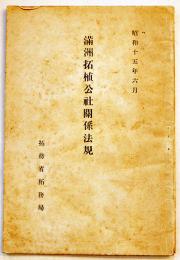 昭和十五年六月
滿洲拓植公社關係法規
拓務省拓務局